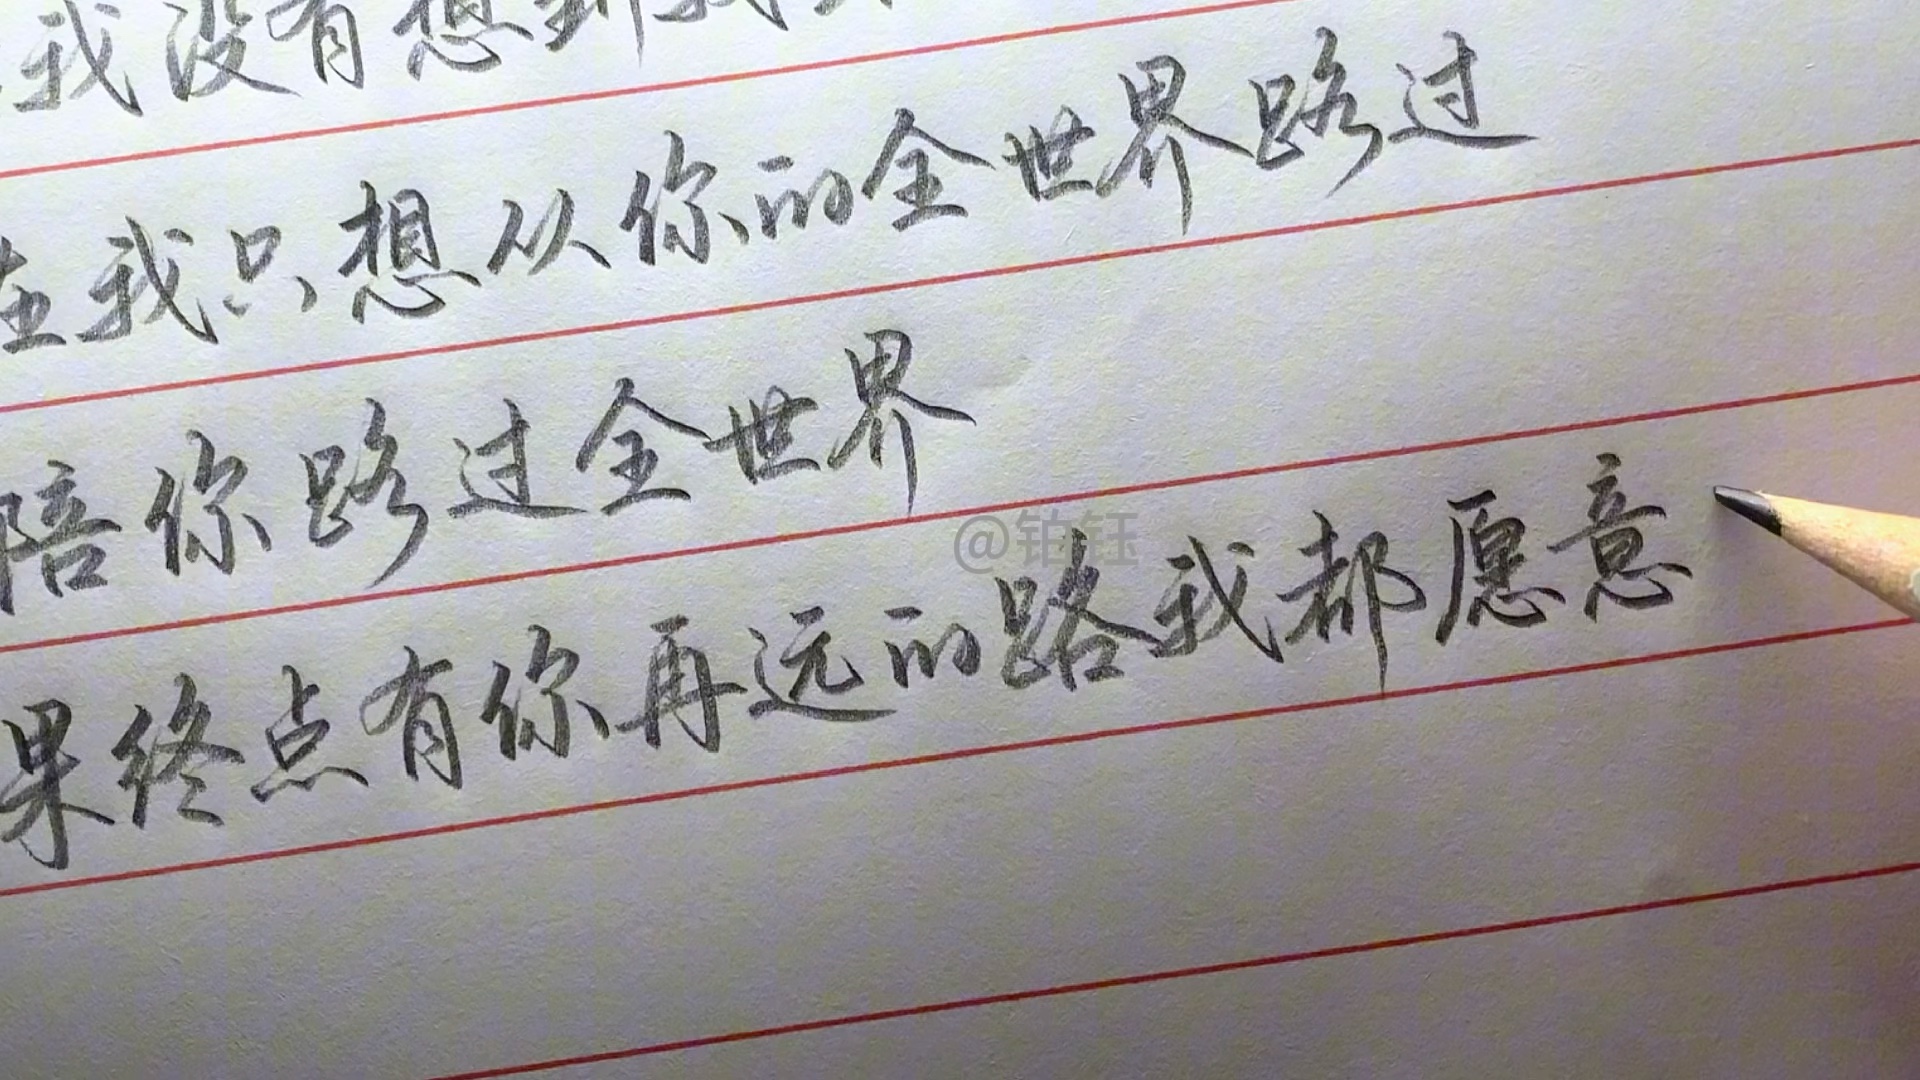 我没有想到我
在我只想从你的全世界路过
陪你路过全世界
果终点有你再远的路我都愿意
@铂钰